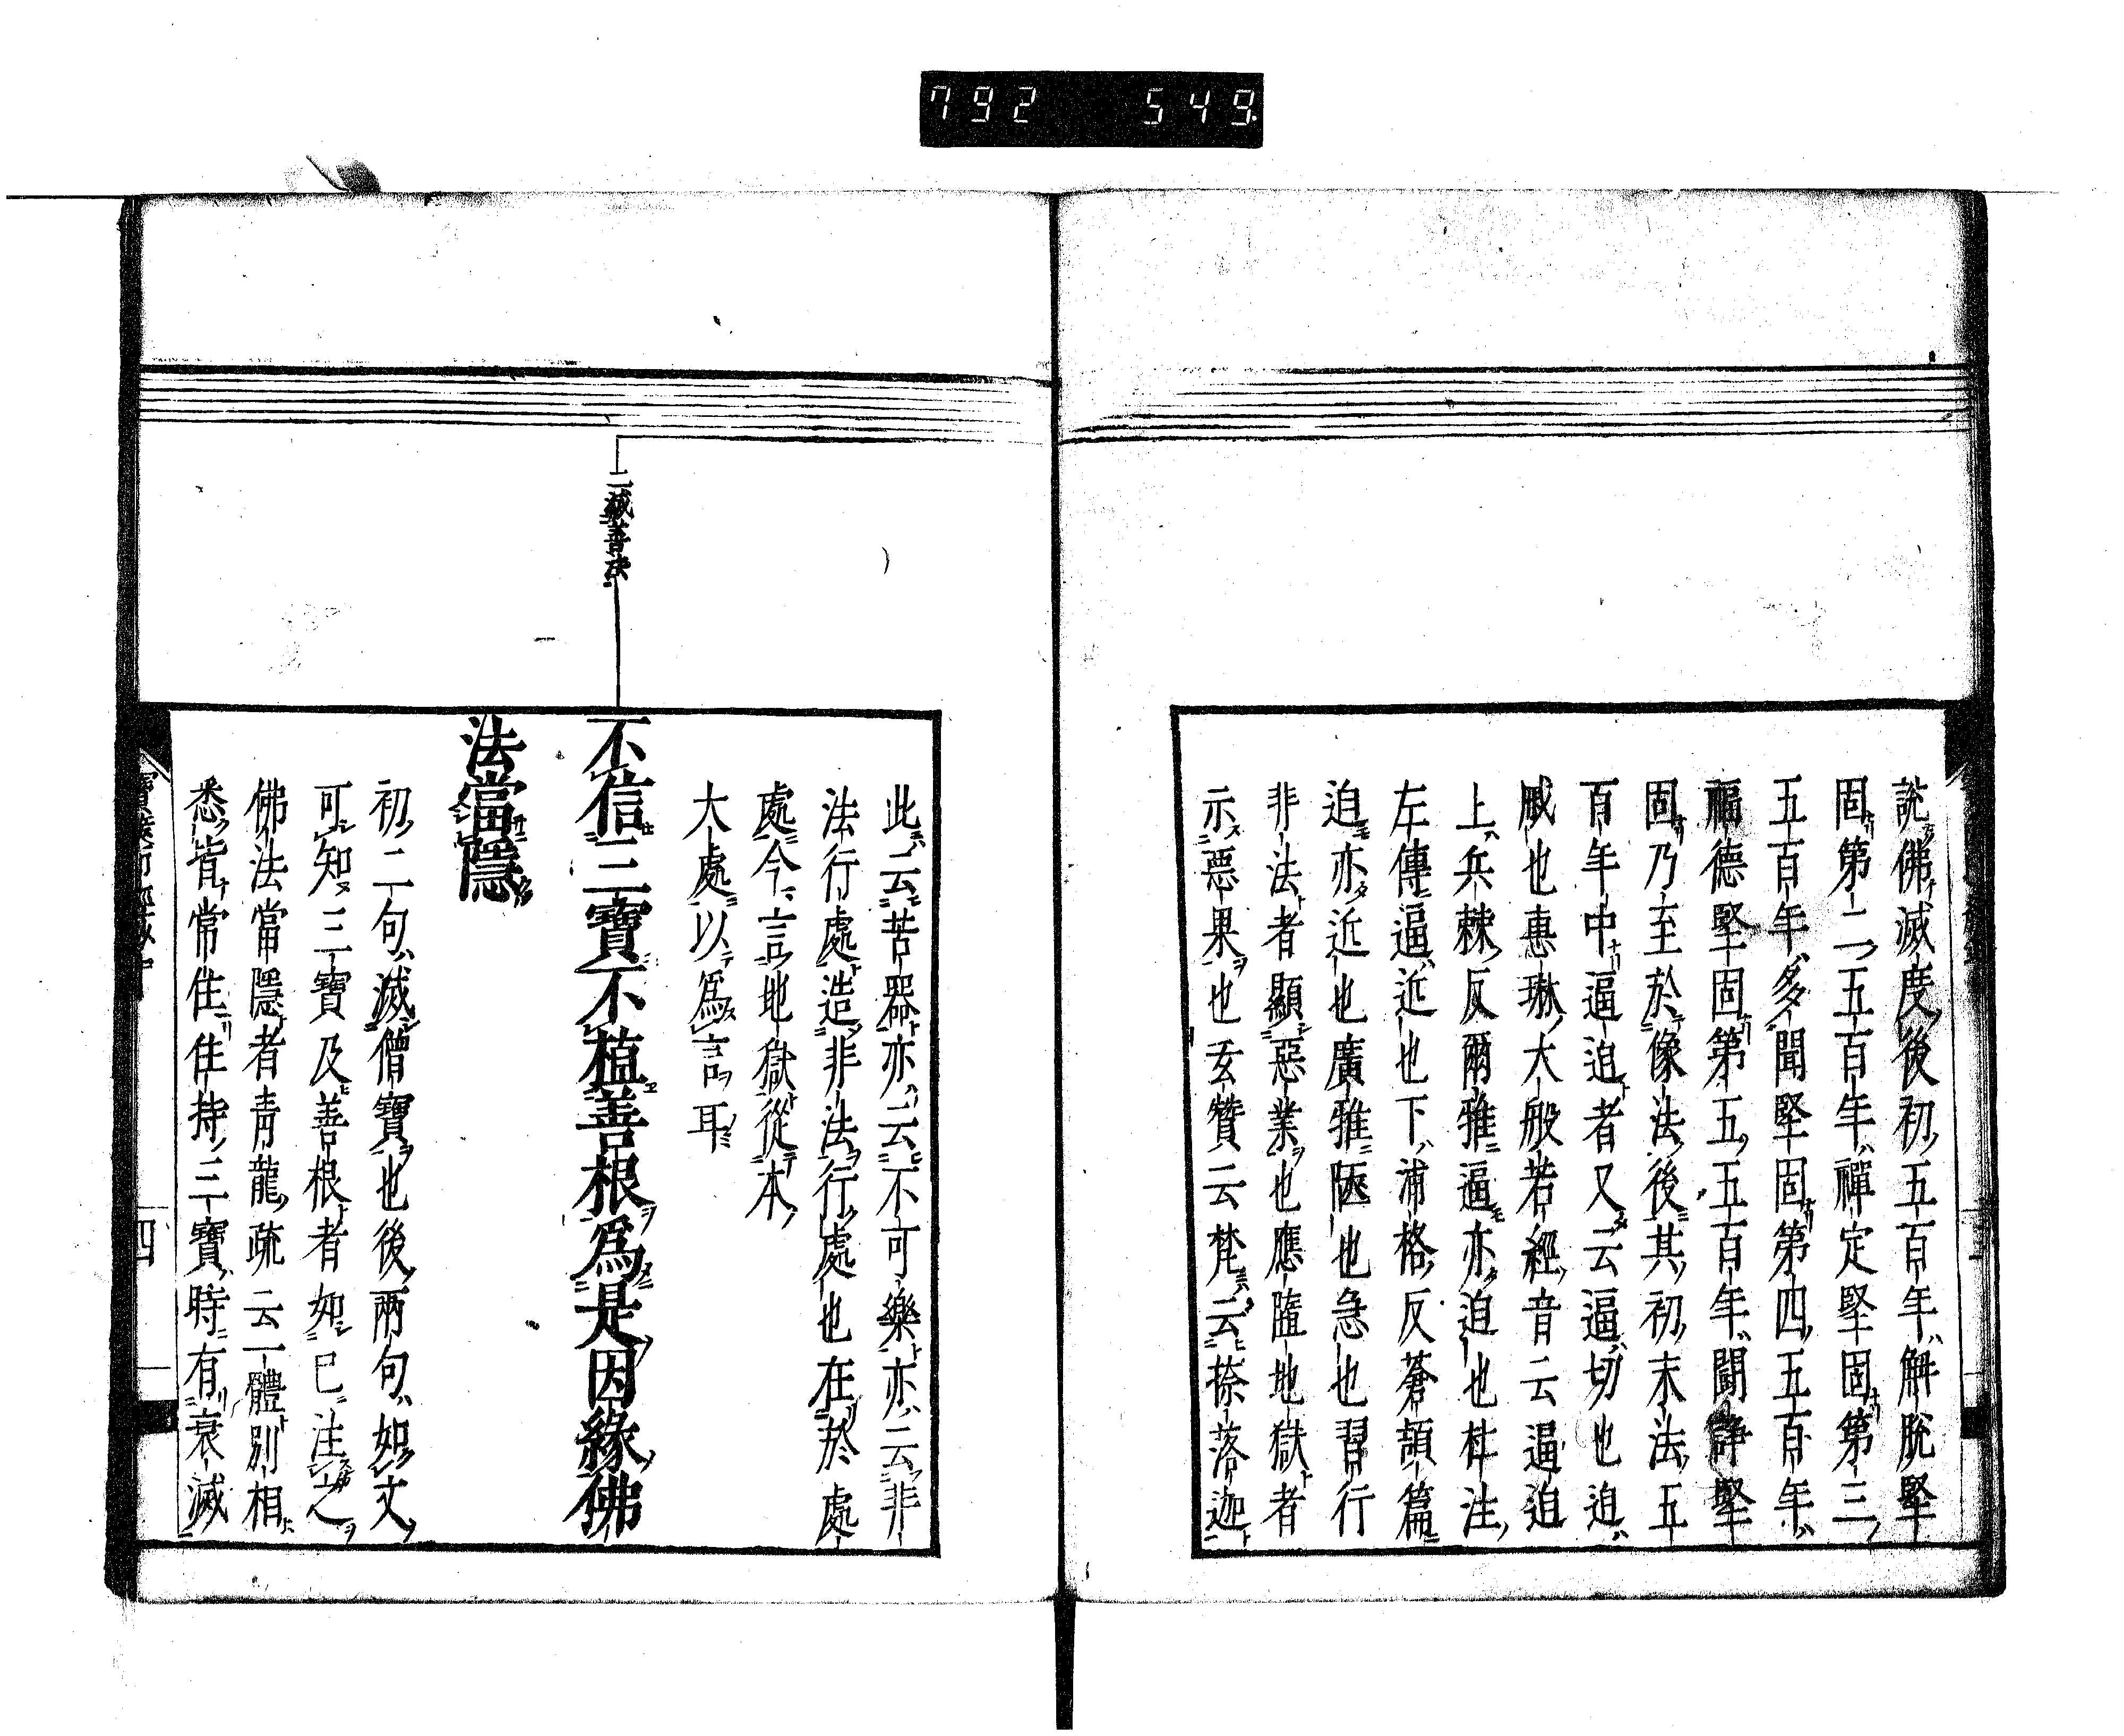 792 549
說佛滅度後初五百年解脫堅
固第二五百年禪定堅固第三
五百年多聞堅固第四五百年
福德堅固第五五百年鬪諍堅
固乃至於像法後其初末法五
百年中逼迫者又云逼切也迫
戚也惠琳大般若經音云逼迫
上兵棘反爾雅逼亦迫也杜注
左傳逼近也下浦格反蒼頡篇
迫亦近也廣雅陿也急也習行
非法者顯惡業也應墮地獄者
示惡果也玄贊云梵云捺落迦
此云苦器亦云不可樂亦云非
法行處造非法行處也在於處
處今言地獄從本
大處以爲言耳
二滅善法
不信三寶不植善根爲是因緣佛
法當隱
初二句滅僧寶也後兩句如文
可知三寶及善根者如已注之
佛法當隱者青龍疏云一體別相
悉皆常住住持三寶時有衰滅
四